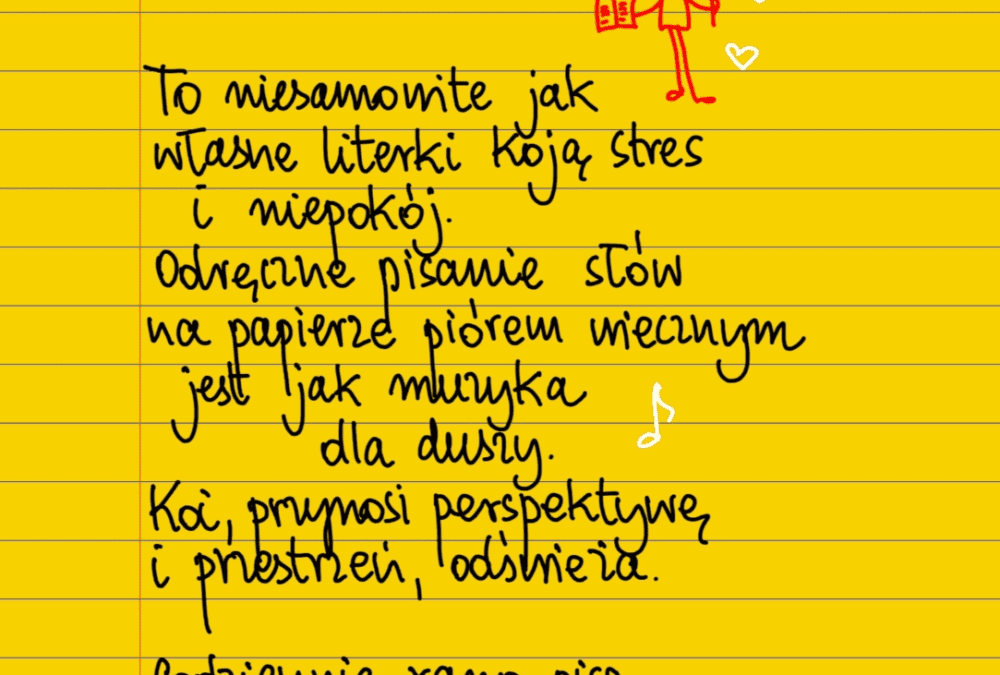 To niesamowite jak
własne literki koją stres
i niepokój.
Odręczne pisanie słów
na papierze piórem wiecznym
jest jak muzyka
dla duszy.
Koi, przynosi perspektywę
i przestrzeń, odświeża.